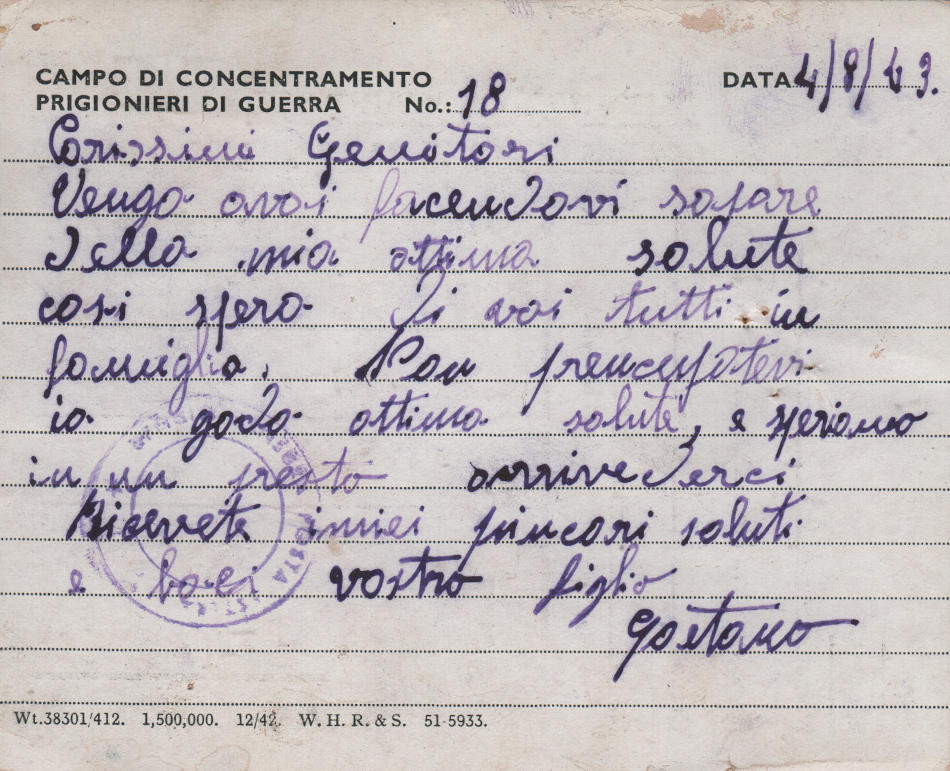 CAMPO DI CONCENTRAMENTO
PRIGIONIERI DI GUERRA No.: 18 DATA 4/8/43.
Carissimi Genitori
Vengo avoi facendovi sapare
della mia ottima salute
cosi spero di voi tutti in
famiglia. Non preucupatevi
io godo ottima salute, e speriamo
in un presto arrivederci
Ricevete imiei piucari saluti
e baci vostro figlio
Gaetano
Wt.38301/412. 1,500,000. 12/42. W. H. R. & S. 51-5933.